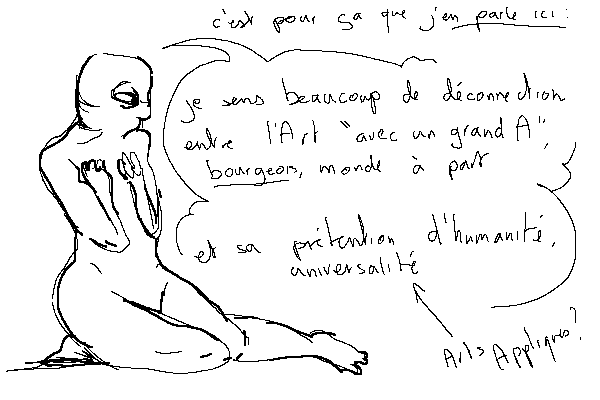 c'est pour ça que j'en parle ici :
je sens beaucoup de déconnection
entre l'Art "avec un grand A",
bourgeois, monde à part
et sa prétention d'humanité,
universalité
Arts Appliqués?